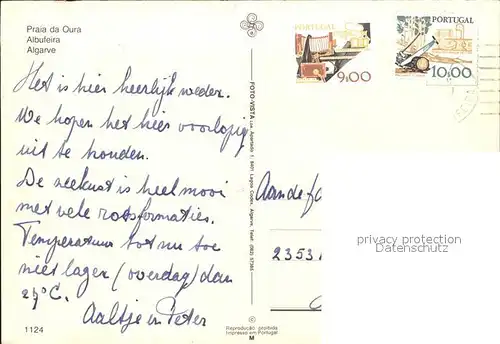 Praia da Oura
Albufeira
Algarve
Het is hier heerlijk weder.
We hopen het hier voorlopig
uit te houden.
De zeekust is heel mooi
met vele rotsformaties.
Temperatuur tot nu toe
niet lager (overdag) dan
°C.
Aaltje en Peter
1124
FOTO-VISTA
Reprodução proibida
Impresso em Portugal
M
PORTUGAL
9$00
PORTUGAL
10$00
Aan de fa
2353
privacy protection
watermark